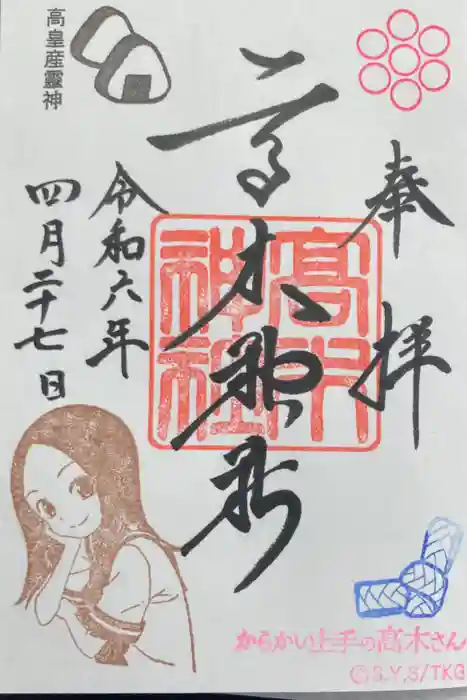 奉拝
高木神社
高木神社
令和六年
四月二十七日
高皇産靈神
からかい上手の高木さん
©S.Y,S/TKG